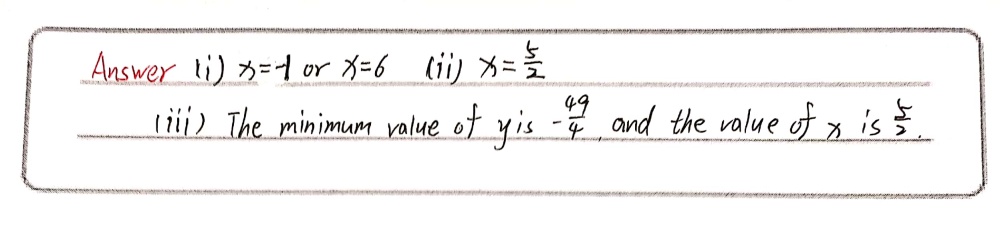 Answer (i) x=-1 or x=6 (ii) x=5/2
(iii) The minimum value of y is -49/4, and the value of x is 5/2.